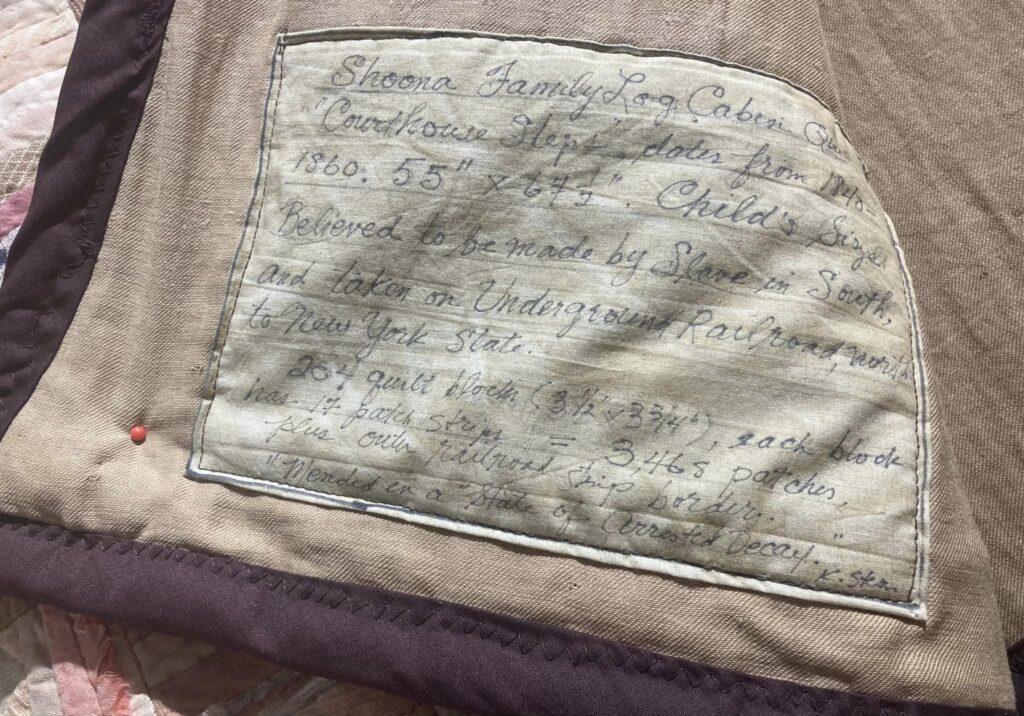 Shoona Family Log Cabin
"Courthouse Steps", dates from 1840-
1860. 55" x 67½". Child's Size.
Believed to be made by Slave in South,
and taken on Underground Railroad, north
to New York State.
204 quilt block (3½" x 3¾"), each block
has 17 patch strips = 3,468 patches,
plus outer railroad strip border.
"Mended in a "State of Arrested Decay."